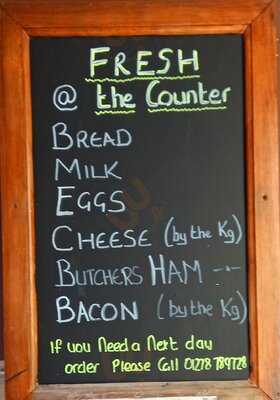 FRESH
@ the Counter
BREAD
MILK
EGGS
CHEESE (by the Kg)
BUTCHERS HAM --
BACON (by the Kg)
If you Need a Next day
order Please Call 01278 789728